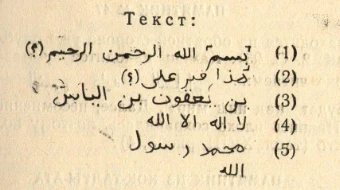 Текст:
(1) بسم الله الرحمن الرحيم (؟)
(2) هذا قبر على (؟)
(3) بن يعقوب بن الياس
(4) لا اله الا الله
(5) محمد رسول
الله